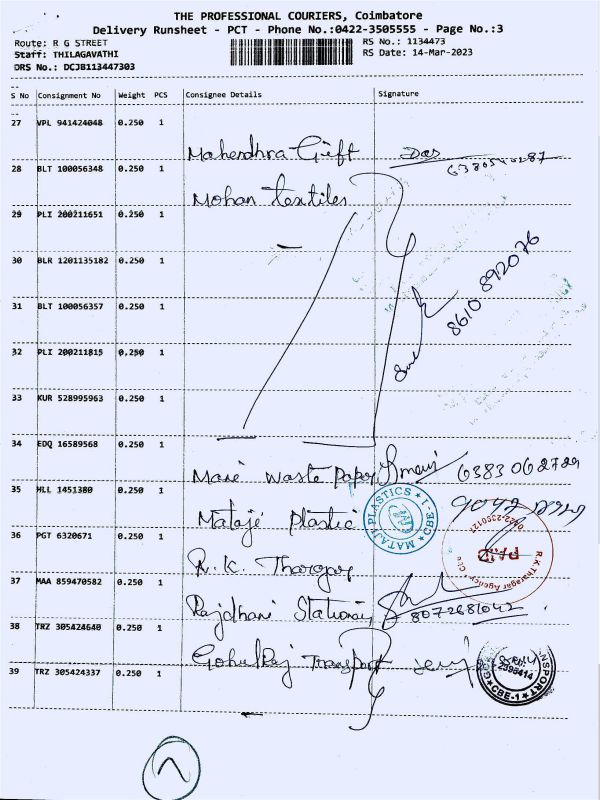 THE PROFESSIONAL COURIERS, Coimbatore
Delivery Runsheet - PCT - Phone No.:0422-3505555 - Page No.:3
Route: R G STREET
RS No.: 1134473
Staff: THILAGAVATHI
RS Date: 14-Mar-2023
DRS No.: DCJB113447303
S No Consignment No Weight PCS Consignee Details Signature
27 VPL 941424048 0.250 1
Mahendhra Gift
28 BLT 100056348 0.250 1
Mohan textiles
29 PLI 200211651 0.250 1
30 BLR 1201135182 0.250 1
8610 892076
31 BLT 100056357 0.250 1
32 PLI 200211815 0.250 1
33 KUR 528995963 0.250 1
34 EDQ 16589568 0.250 1
Mani waste paper 6383 062729
35 HLL 1451380 0.250 1
Mataji plastic
MATAJI PLASTICS CBE-1
36 PGT 6320671 0.250 1
R.K. Tharagar
R.K.Tharagar Agency, Cbe
0422-2390127
PAID
37 MAA 859470582 0.250 1
Rajdhani Stationary 8072681042
38 TRZ 305424640 0.250 1
Gohulraj Transport
TRANSPORT
CBE-1
2398414
39 TRZ 305424337 0.250 1